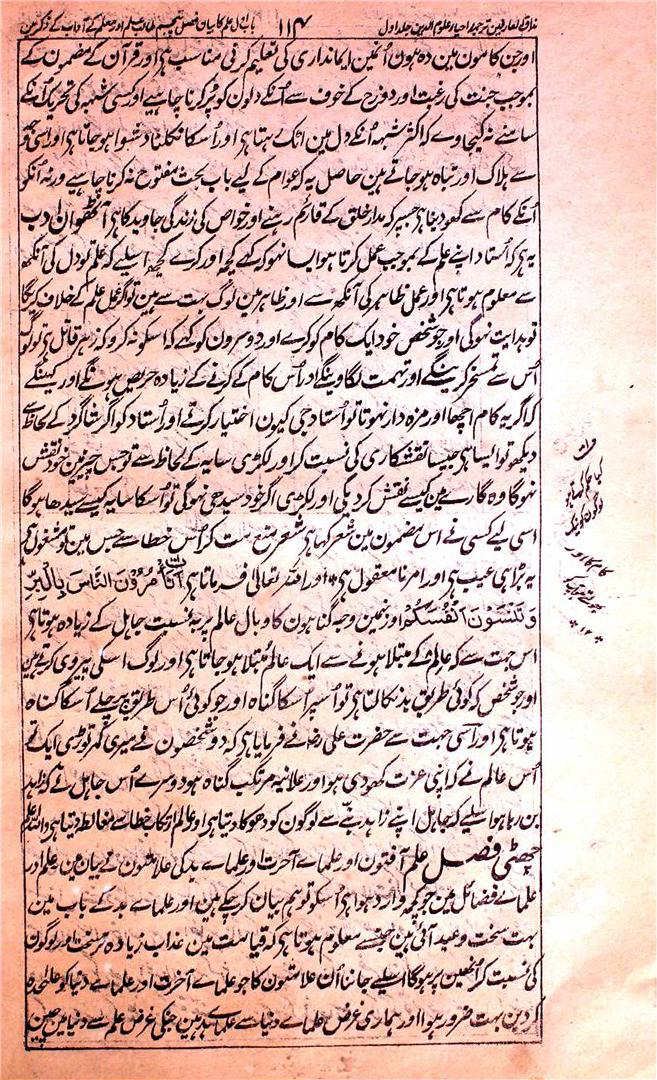 مذاق العارفین ترجمہ احیاء علوم الدین جلد اول
۱۱۴
باب اول علم کا بیان فصل پنجم طالب علم اور معلم کے آداب کے ذکر مین
اور جن کامون مین وہ ہون اُنمین ایمانداری کی تعلیم کرنی مناسب ہی اور قرآن کے مضمون کے
بموجب جنت کی رغبت اور دوزخ کے خوف سے اُنکے دلون کو پُر کرنا چاہیے اور کسی شبہہ کی تحریک اُنکے
سامنے نہ کیجاوے کہ اکثر شبہہ اُنکے دل مین اٹک رہتا ہی اور اُسکا نکلنا دشوار ہو جاتا ہی اور اسی وجہ
سے ہلاک اور تباہ ہو جاتے ہین حاصل یہ کہ عوام کے لیے باب بحث مفتوح نہ کرنا چاہیے ورنہ اُنکو
اُنکے کام سے کھو دینا ہی جسپر کہ مدار خلق کے قائم رہنے اور خواص کی زندگی جاوید کا ہی آٹھوان ادب
یہ ہی کہ اُستاد اپنے علم کے بموجب عمل کرتا ہو ایسا نہو کہ کہے کچھ اور کرے کچھ اسلیے کہ علم تو دل کی آنکھ
سے معلوم ہوتا ہی اور عمل ظاہر کی آنکھ سے اور ظاہر بین لوگ بہت سے ہین تو اگر عمل علم کے خلاف کریگا
تو ہدایت نہوگی اور جو شخص خود ایک کام کو کرے اور دوسرون کو کہے کہ اسکو نہ کرو کہ زہر قاتل ہی تو لوگ
اُس سے تمسخر کرینگے اور تہمت لگاوینگے اور اُس کام کے کرنے کے زیادہ حریص ہونگے اور کہینگے
کہ اگر یہ کام اچھا اور مزہ دار نہوتا تو اُستاد جی کیون اختیار کرتے اور اُستاد کو اگر شاگرد کے لحاظ سے
دیکھو تو ایسا ہی جیسا نقش کاری کی نسبت کر اور لکڑی سایہ کے لحاظ سے تو جس چیز مین خود نقش
نہوگا وہ گارے مین کیسے نقش کر دیگی اور لکڑی اگر خود سیدھی نہوگی تو اُسکا سایہ کیسے سیدھا ہوگا
اسی لیے کسی نے اس مضمون مین شعر کہا ہی شعر منع مت کر اُس خطا سے جس مین تو مشغول ہی
یہ بڑا ہی عیب ہی اور امر نا معقول ہی اور اللہ تعالی فرماتا ہی اَتَأْمُرُوْنَ النَّاسَ بِالْبِرِّ
وَتَنْسَوْنَ اَنْفُسَكُمْ اور نہین وجہ گناہون کا وبال عالم پر بہ نسبت جاہل کے زیادہ ہوتا ہی
اس جہت سے کہ عالم کے مبتلا ہونے سے ایک عالم مبتلا ہو جاتا ہی اور لوگ اسکی پیروی کرتے ہین
اور جو شخص کہ کوئی طریق بد نکالتا ہی تو اُسپر اُسکا گناہ اور جو کوئی اُس طریق پر چلے اُسکا گناہ
ہوتا ہی اور اسی جہت سے حضرت علی رضہ نے فرمایا ہی کہ دو شخصون نے میری کمر توڑی ایک تو
اُس عالم نے کہ اپنی عزت کھو دی ہو اور علانیہ مرتکب گناہ ہو دوسرے اُس جاہل نے کہ زاہد
بن رہا ہو اسلیے کہ جاہل اپنے زاہد بننے سے لوگون کو دھوکا دیتا ہی اور عالم ارتکاب خطا سے مغالطہ دیتا ہی واللہ اعلم
چھٹی فصل علم آفتون اور علماے آخرت اور علماے بد کی علامتون کے بیان مین علم اور
علماے فضائل مین جو کچھ وارد ہوا ہی اُسکو تو ہم بیان کر چکے ہین اور علماے بد کے باب مین
بہت سخت وعید آئی ہین جنسے معلوم ہوتا ہی کہ قیامت مین عذاب زیادہ سخت اور لوگون
کی نسبت کر اُنھین پر ہوگا اسلیے جاننا اُن علامتون کا جو علماے آخرت اور علماے دنیا کو علیحدہ
کر دین بہت ضرور ہوا اور ہماری غرض علماے دنیا سے علماے بد ہین جنکی غرض علم سے دنیا مین چین
کیا حکم کرتے ہو
لوگون کو نیک
کام کا اور
بھولتے ہو آپ کو
۱۲